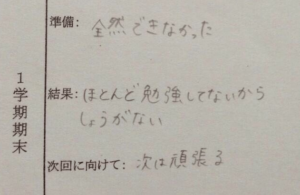 1学期期末
準備: 全然できなかった
結果: ほとんど勉強してないから
しょうがない
次回に向けて: 次は頑張る